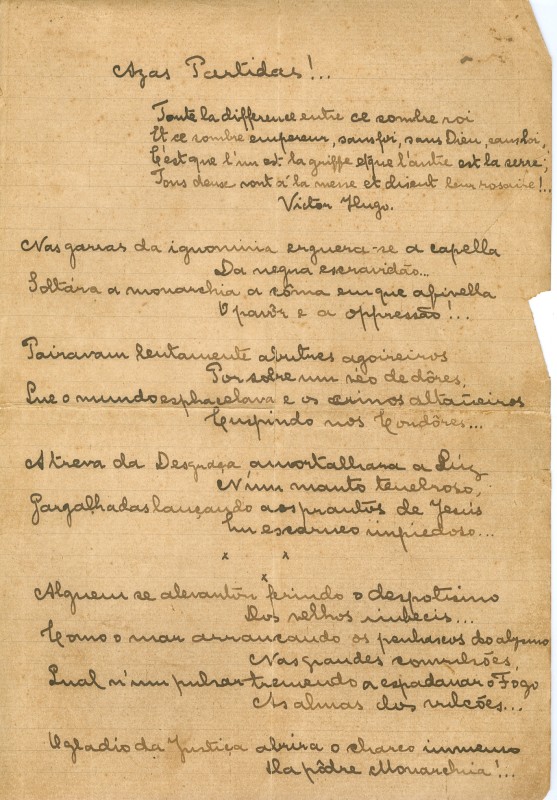 Azas Partidas!...
Toute la différence entre ce sombre roi
Et ce sombre empereur, sans foi, sans Dieu, sans loi,
C'est que l'un est la griffe et que l'autre est la serre;
Tous deux vont à la messe et disent leur rosaire!..
Victor Hugo.
Nas garras da ignominia erguera-se a capella
Da negra escravidão...
Soltára a monarchia a côma em que afivella
O pavôr e a oppressão!...
Pairavam lentamente abutres agoireiros
Por sobre um céo de dôres,
Que o mundo esphacelava e os altaneiros
Cuspindo nos Condôres...
A treva da Desgraça amortalhara a Luz
N'um manto tenebroso,
Gargalhadas lançando aos prantos de Jesus
Em escarneo impiedoso...
x x
x
Alguem se alevantou ferindo o despotismo
Dos velhos imbecis...
Como o mar arrancando os penhascos do abysmo
Nas grandes convulsões,
Qual n'um pulsar tremendo a espadanar o Fogo
As almas dos vulcões...
O gladio da Justiça abrira o charco immenso
Da pôdre Monarchia!...